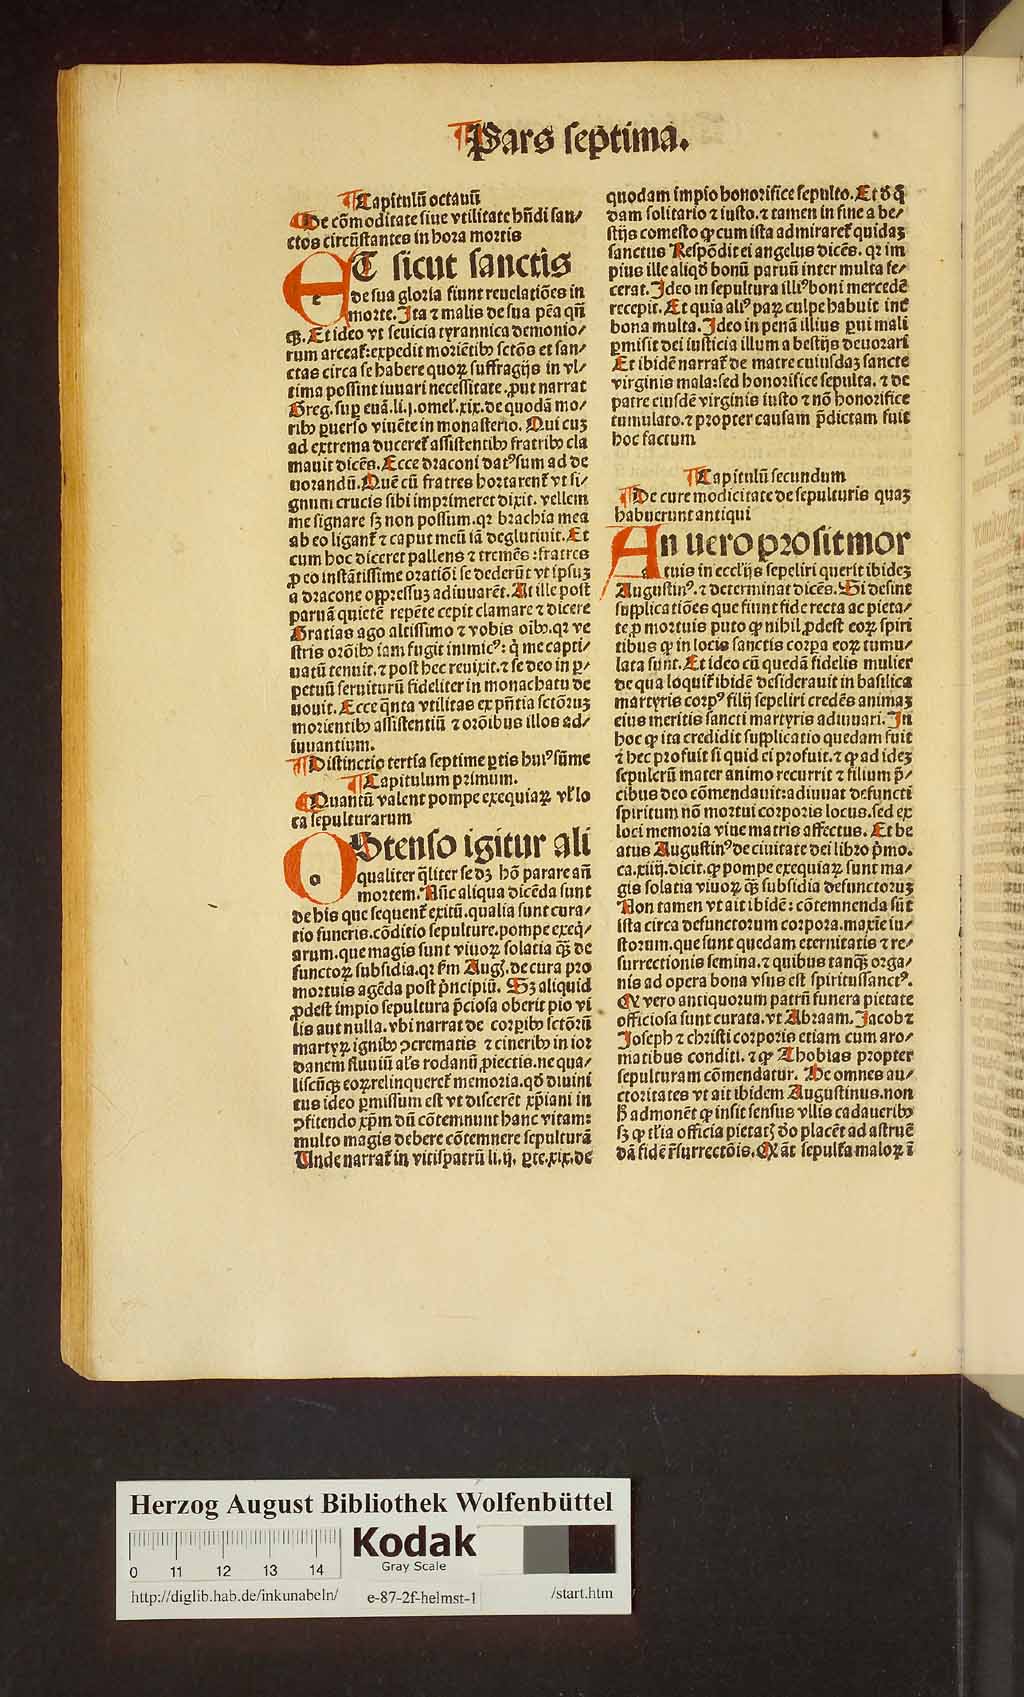 Pars septima.
Capitulū octauū
De cōmoditate siue vtilitate hn̄di san⸗
ctos circūstantes in hora mortis
ET sicut sanctis
de sua gloria fiunt reuelatiōes in
morte. Ita ⁊ malis de sua pēa qn̄
qꝫ. Et ideo vt seuicia tyrannica demonio⸗
rum arceat᷑: expedit moriētibꝰ sctōs et san⸗
ctas circa se habere quoꝝ suffragijs in vl⸗
tima possint iuuari necessitate. ꝓut narrat
Greg. suꝑ euā. li. j. omel᷑. xix. de quodā mo⸗
ribꝰ ꝑuerso viuēte in monasterio. Qui cuꝫ
ad extrema duceret᷑ assistentibꝰ fratribꝰ cla
mauit dicēs. Ecce draconi datꝰ sum ad de
uorandū. Quē cū fratres hortarent᷑ vt si⸗
gnum crucis sibi imprimeret dixit. vellem
me signare sꝫ non possum. qꝛ brachia mea
ab eo ligant᷑ ⁊ caput meū iā deglutiuit. Et
cum hoc diceret pallens ⁊ tremēs: fratres
ꝓ eo instātissime oratiōi se dederūt vt ipsuꝫ
a dracone oppressuꝫ adiuuarēt. At ille post
paruā quietē repēte cepit clamare ⁊ dicere
Gratias ago altissimo ⁊ vobis oibꝰ. qꝛ ve
stris orōibꝰ iam fugit inimicꝰ: q̇ me capti⸗
uatū tenuit. ⁊ post hec reuixit. ⁊ se deo in ꝑ⸗
petuū seruiturū fideliter in monachatu de
uouit. Ecce q̄nta vtilitas ex pn̄tia sctōruꝫ
morientibꝰ assistentiū ⁊ orōibus illos ad⸗
iuuantium.
Distinctio tertia septime ꝑtis huiꝰ sūme
Capitulum primum.
Quantū valent pompe exequiaꝝ vl᷑ lo
ca sepulturarum
OStenso igitur ali
qualiter q̄liter se dꝫ hō parare an̄
mortem. Nūc aliqua dicēda sunt
de his que sequent᷑ exitū. qualia sunt cura⸗
tio funeris. cōditio sepulture. pompe exeq̄⸗
arum. que magis sunt viuoꝝ solatia qꝫ̄ de
functoꝝ subsidia. qꝛ ẜm Augꝰ. de cura pro
mortuis agēda post p̄ncipiū. Sꝫ aliquid
ꝓdest impio sepultura p̄ciosa oberit pio vi
lis aut nulla. vbi narrat de corꝑibꝰ sctōrū
martyꝝ ignibꝰ ↄcrematis ⁊ cineribꝰ in ior
danem fluuiū al᷑s rodanū ꝓiectis. ne qua⸗
liscūqꝫ eoꝝ relinqueret᷑ memoria. qd̄ diuini
tus ideo ꝑmissum est vt discerēt xp̄iani in
ↄfitendo xp̄m dū cōtemnunt hanc vitam:
multo magis debere cōtemnere sepulturā
Unde narrat᷑ in vitispatrū li. ij. ꝑte. xix. de
quodam impio honorifice sepulto. Et d̄ q̄
dam solitario ⁊ iusto. ⁊ tamen in fine a be⸗
stijs comesto ꝙ cum ista admiraret᷑ quidaꝫ
sanctus Respōdit ei angelus dicēs. qꝛ im
pius ille aliqd̄ bonū paruū inter multa fe⸗
cerat. Ideo in sepultura illiꝰ boni mercedē
recepit. Et quia aliꝰ paꝝ culpe habuit int᷑
bona multa. Ideo in penā illius ꝑui mali
ꝑmisit dei iusticia illum a bestijs deuorari
Et ibidē narrat᷑ de matre cuiusdaꝫ sancte
virginis mala: sed honorifice sepulta. ⁊ de
patre eiusdē virginis iusto ⁊ nō honorifice
tumulato. ⁊ propter causam p̄dictam fuit
hoc factum
Capitulū secundum
De cure modicitate de sepulturis quaꝫ
habuerunt antiqui
AN uero prosit mor
tuis in eccl̄ijs sepeliri querit ibideꝫ
Augustinꝰ. ⁊ determinat dicēs. Si desint
supplicatiōes que fiunt fide recta ac pieta⸗
te ꝓ mortuis puto ꝙ nihil ꝓdest eoꝝ spiri
tibus ꝙ in locis sanctis corpa eoꝝ tumu⸗
lata sunt. Et ideo cū quedā fidelis mulier
de qua loquit᷑ ibidē desiderauit in basilica
martyris corpꝰ filij sepeliri credēs animaꝫ
eius meritis sancti martyris adiuuari. In
hoc ꝙ ita credidit supplicatio quedam fuit
⁊ hec profuit si quid ei profuit. ⁊ ꝙ ad ideꝫ
sepulcrū mater animo recurrit ⁊ filium p̄⸗
cibus deo cōmendauit: adiuuat defuncti
spiritum nō mortui corporis locus. sed ex
loci memoria viue matris affectus. Et be
atus Augustinꝰ de ciuitate dei libro p̄mo.
ca. xiiij. dicit. ꝙ pompe exequiaꝝ sunt ma⸗
gis solatia viuoꝝ qꝫ̄ subsidia defunctoruꝫ
Non tamen vt ait ibidē: cōtemnenda sūt
ista circa defunctorum corpora. maxīe iu⸗
storum. que sunt quedam eternitatis ⁊ re⸗
surrectionis semina. ⁊ quibus tanqꝫ̄ orga⸗
nis ad opera bona vsus est spiritussanctꝰ.
Ex vero antiquorum patrū funera pietate
officiosa sunt curata. vt Abraam. Jacob ⁊
Joseph ⁊ christi corporis etiam cum aro⸗
matibus conditi. ⁊ ꝙ Thobias propter
sepulturam cōmendatur. De omnes au⸗
ctoritates vt ait ibidem Augustinus. non
h̄ admonēt ꝙ insit sensus vllis cadaueribꝰ
sꝫ ꝙ tl̄ia officia pietatꝭ do placēt ad astruē
dā fidē r̄surrectōis. Ex āt sepult᷑a maloꝝ ī
Herzog August Bibliothek Wolfenbüttel
Kodak
Gray Scale
0 11 12 13 14
http://diglib.hab.de/inkunabeln/ e-87-2f-helmst-1 /start.htm